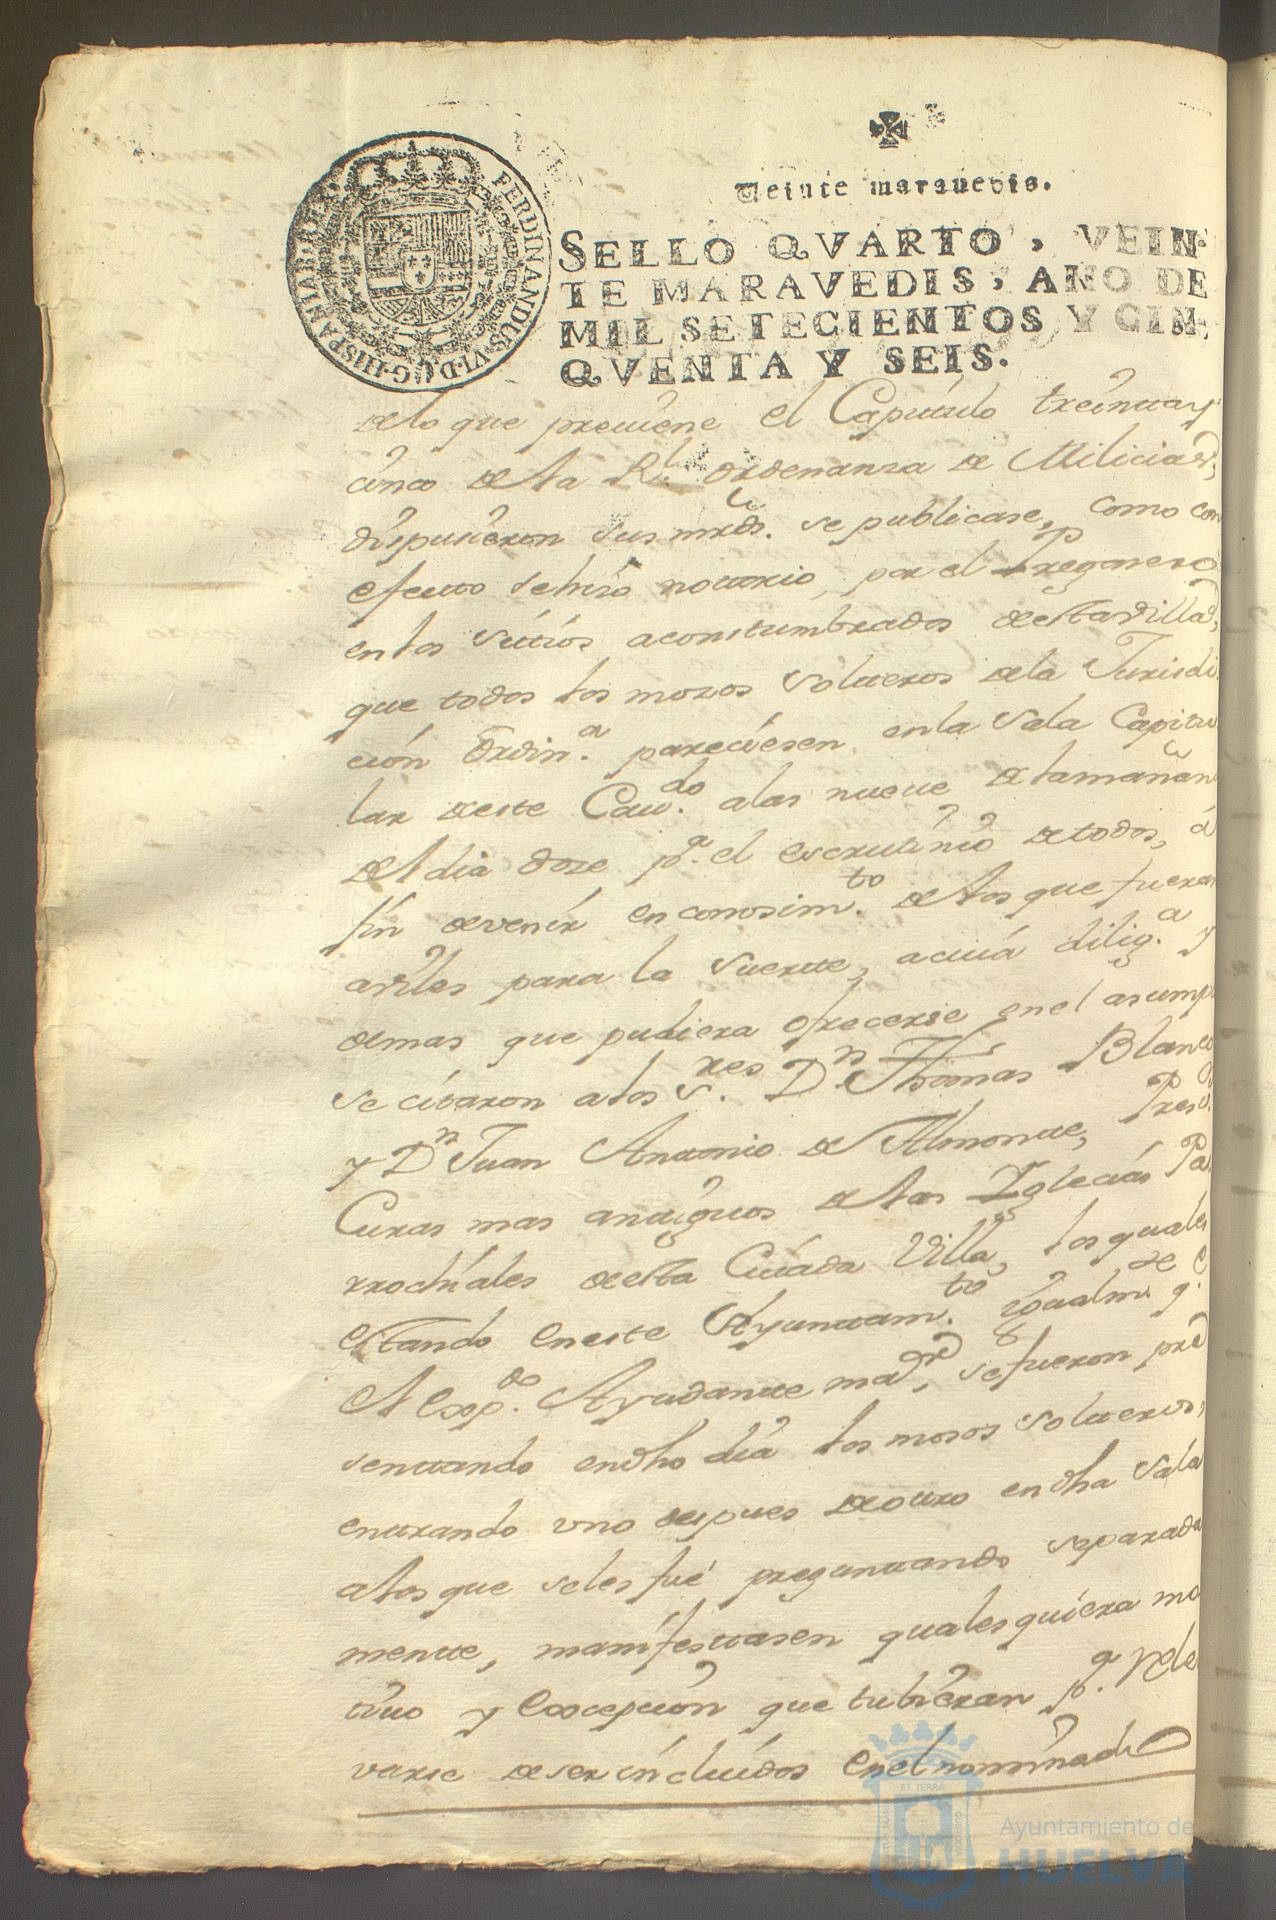 Veinte maravedis.
SELLO QVARTO, VEIN-
TE MARAVEDIS, AÑO DE
MIL SETECIENTOS Y CIN-
QVENTA Y SEIS.
FERDINANDUS·VI·D·G·HISPANIAR·REX
de lo que previene el Capitulo treinta y
cinco de la Rl. Ordenanza de Milicias,
dispusieron sus mrds. se publicase, como con
efecto se hizo notorio, por el Pregonero
en los sitios acostumbrados de esta Villa,
que todos los mozos solteros de la Jurisdi
ción Ordin.a pareciesen en la Sala Capitu
lar de este Cav.do a las nueve de la mañan
del dia doze p.a el escrutinio de todos, á
fin de venir en conosim.to de los que fueran
aviles para la suerte, a cuiá dilig.a y
demas que pudiera ofrecerse en el asump
se citaron a los S.res Dn. Thomas Blanco
y Dn Juan Antonio de Almonte, Pres
Curas mas antiguos de las Iglecias Pa
rrochiales de esta Citada Villa, los quales
estando en este Ayuntam.to
el Exp.do Ayudante se fueron pre
sentando en dho dia los mosos solteros,
entrando uno despues de otro en dha Sala
a los que se les fué preguntando separada
mente, manifestasen qualesquiera mo
tivo y Excepcion que tubieran p.a Rele
varse de ser incluidos en el nominad
Ayuntamiento de
HUELVA